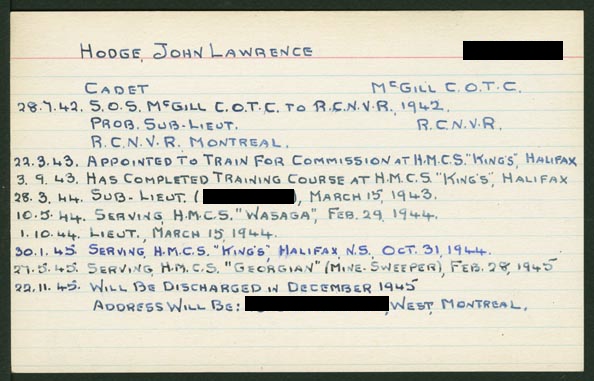 HODGE, JOHN LAWRENCE
CADET McGILL C.O.T.C.
28.7.42. S.O.S. McGILL C.O.T.C. TO R.C.N.V.R., 1942.
PROB. SUB-LIEUT. R.C.N.V.R.
R.C.N.V.R. MONTREAL.
22.3.43. APPOINTED TO TRAIN FOR COMMISSION AT H.M.C.S. "KING'S", HALIFAX
3.9.43. HAS COMPLETED TRAINING COURSE AT H.M.C.S. "KING'S", HALIFAX
28.3.44. SUB-LIEUT. ( ), MARCH 15, 1943.
10.5.44. SERVING, H.M.C.S. "WASAGA", FEB. 29, 1944.
1.10.44. LIEUT., MARCH 15, 1944.
30.1.45. SERVING, H.M.C.S. "KING'S" HALIFAX, N.S., OCT. 31, 1944.
27.5.45. SERVING, H.M.C.S. "GEORGIAN" (MINE-SWEEPER), FEB. 28, 1945
22.11.45. WILL BE DISCHARGED IN DECEMBER 1945
ADDRESS WILL BE: , WEST, MONTREAL.